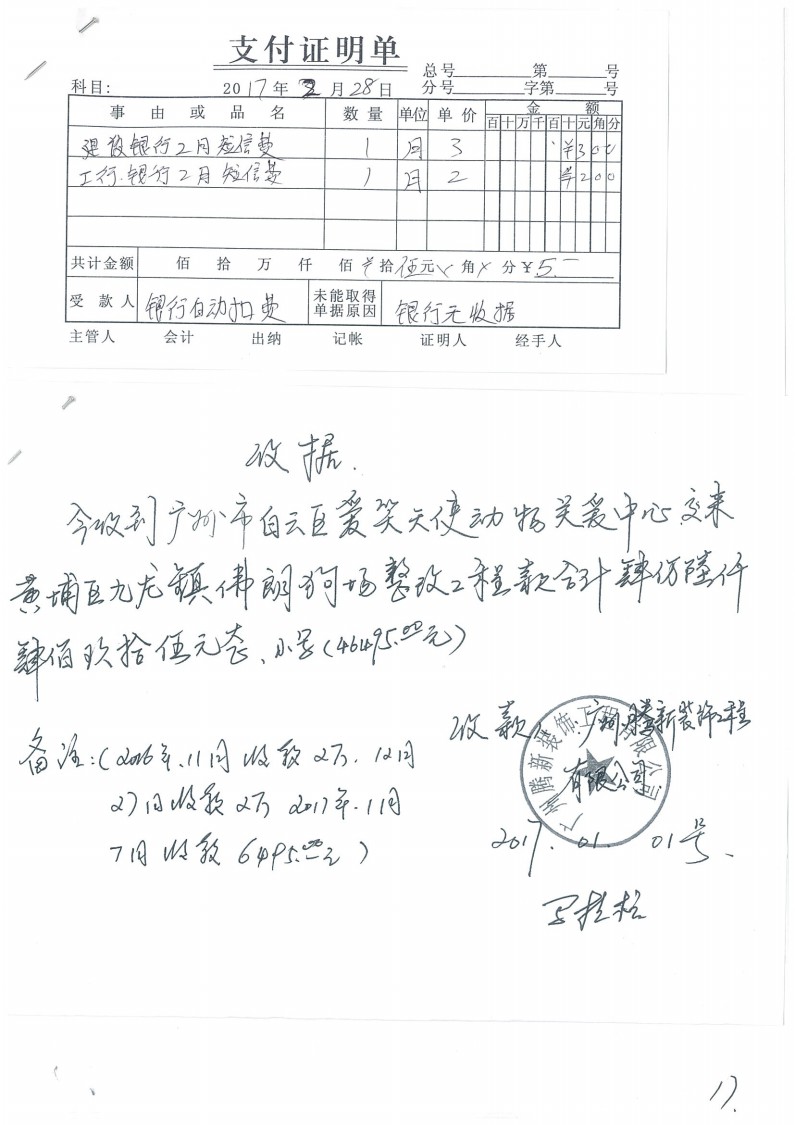 支付证明单
总号 第 号
科目: 2017年2月28日 分号 字第 号
事由或品名 数量 单位 单价 金额
百十万千百十元角分
建设银行2月短信费 1 月 3 ¥300
工行.银行2月短信费 1 月 2 ¥200
共计金额 佰 拾 万 仟 佰 拾 伍元 角 分 ¥5.-
受款人 银行自动扣费 未能取得单据原因 银行无收据
主管人 会计 出纳 记帐 证明人 经手人
收据.
今收到广州市白云区爱笑天使动物关爱中心交来
黄埔区九龙镇伟朗狗场整改工程款合计肆万陆仟
肆佰玖拾伍元整、小写(46495.00元)
收款 广州腾新装饰工程
有限公司
备注:(2016年.11月收款2万.12月
27日收款2万 2017年.1月
7日收款6495.00元)
2017.01.01号、
17.